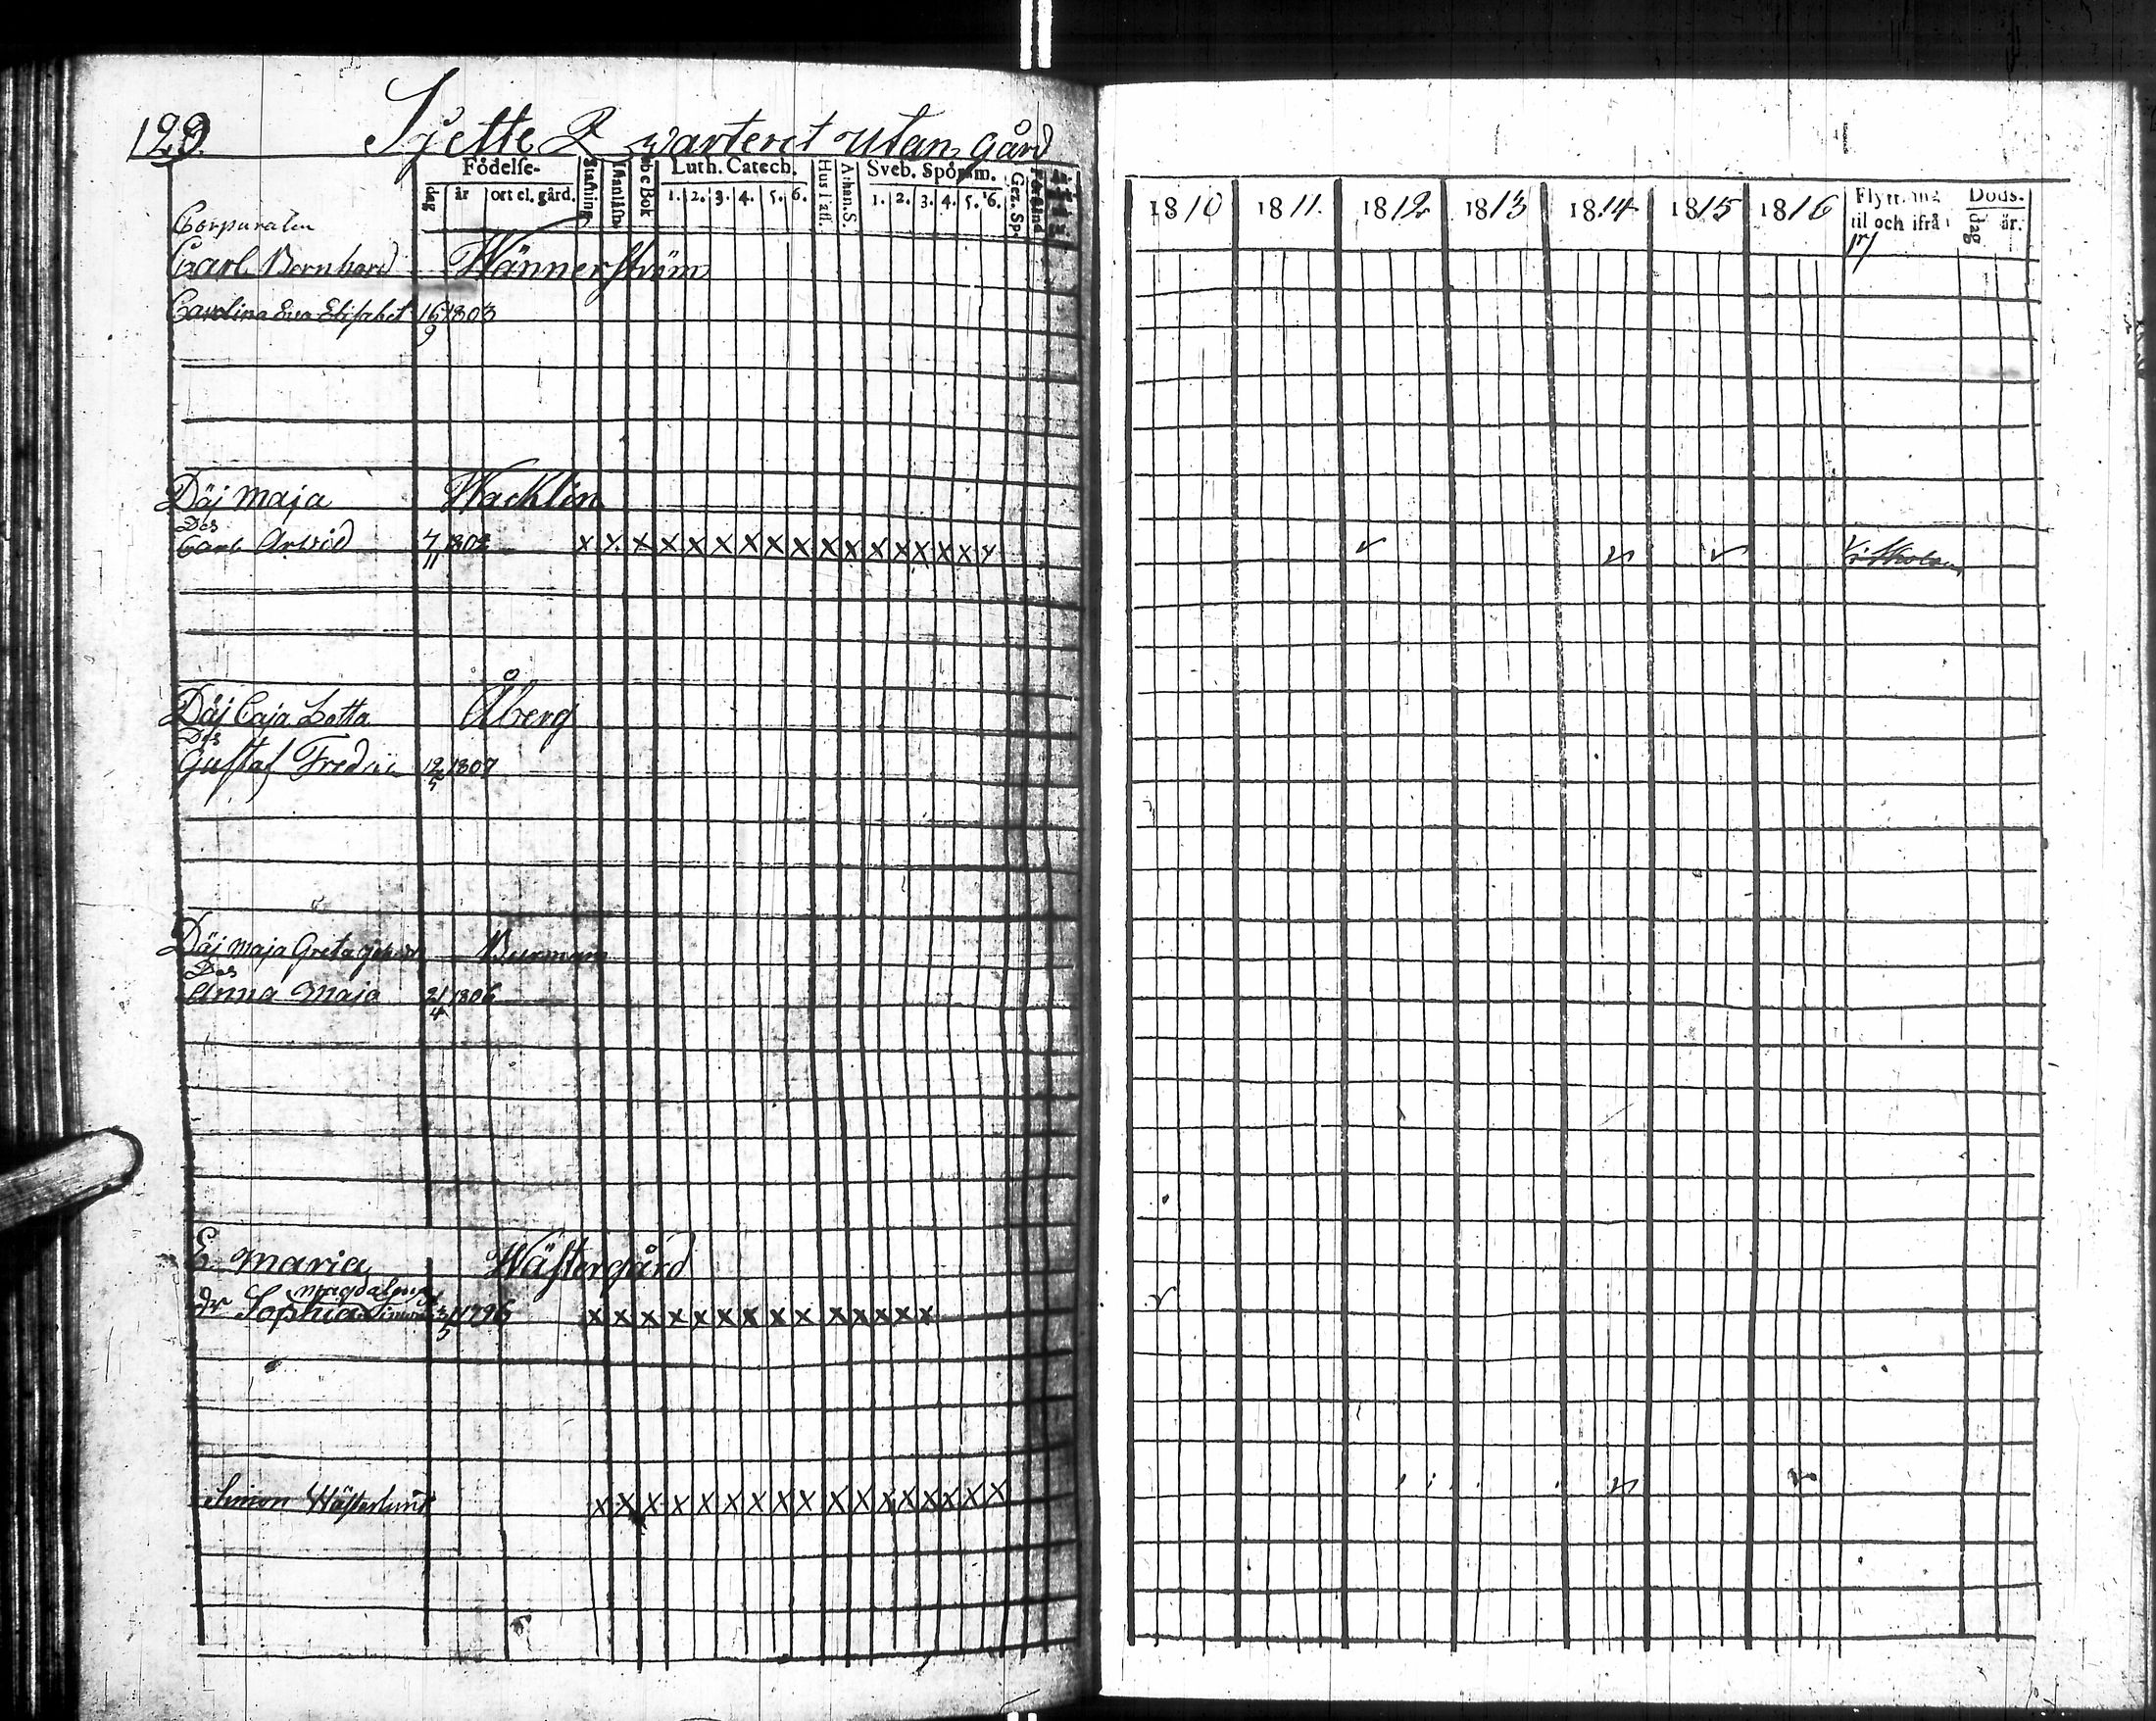 129.
Sjette Qwarteret utan gård
Födelse- Stafning Luth. Catech. Hus Tafl. Athan. S. Sveb. Spörsm. Gez. Sp.
dag år ort el. gård. a b c Bok 1. 2. 3. 4. 5. 6. 1. 2. 3. 4. 5. 6.
1810 1811. 1812 1813 1814 1815 1816 Flyttning Döds-
til och ifrå dag år.
Corporalen
Carl Bernhard Wännerström
Carolina Eva Elisabet 16/9 1803
Däj Maja Wacklin
Des
Carl Arvid 7/11 1802 x x x x x x x x x x x x x x x x x
Däj Caja Lotta Åberg
Des
Gustaf Fredric 1807
Däj Maja Greta Burman
Des
Anna Maja 21/4 1806
E Maria Wästergård
Magdalena
dr Sophia 1796 x x x x x x x x x x x x x x
Simon Wästerlund x x x x x x x x x x x x x x x x x